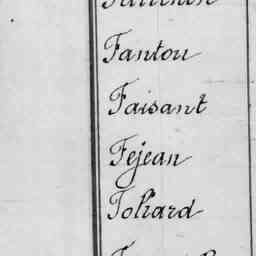 Fanton
Faisant
Fejean
Foliard